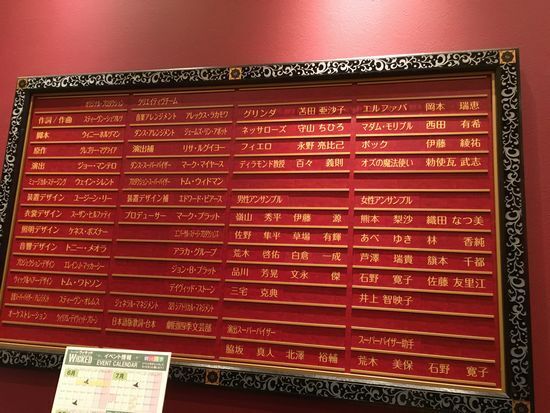 オリジナル・プロダクション クリエイティブチーム
作詞/作曲 スティーヴン・シュワルツ
脚本 ウィニー・ホルズマン
原作 グレゴリー・マグワイア
演出 ジョー・マンテロ
ミュージカル・ステージング ウェイン・シレント
装置デザイン ユージーン・リー
衣裳デザイン スーザン・ヒルファティ
照明デザイン ケネス・ポズナー
音響デザイン トニー・メオラ
プロジェクション・デザイン エレイン・J・マッカーシー
ウィッグ&ヘアー・デザイン トム・ワトソン
音楽スーパーバイザー スティーヴン・オレムス
オーケストレーション ウィリアム・デイヴィッド・ブローン
音楽アレンジメント アレックス・ラカモワ
ダンス・アレンジメント ジェームズ・リン・アボット
演出補 リサ・ルグイヨー
ダンス・スーパーバイザー マーク・マイヤーズ
プロダクション・スーパーバイザー トム・ウィドマン
装置デザイン補 エドワード・ピアース
プロデューサー マーク・プラット
ユニバーサル・ステージ・プロダクションズ
アラカ・グループ
ジョン・B・プラット
デイヴィッド・ストーン
ジェネラル・マネジメント 321シアトリカル・マネジメント
日本語版歌詞・台本 劇団四季文芸部
グリンダ 苫田 亜沙子
ネッサローズ 守山 ちひろ
フィエロ 永野 亮比己
ディラモンド教授 百々 義則
男性アンサンブル
嶺山 秀平 伊藤 源
佐野 隼平 草場 有輝
荒木 啓佑 白倉 一成
品川 芳晃 文永 傑
三宅 克典
演出スーパーバイザー
脇坂 真人 北澤 裕輔
エルファバ 岡本 瑞恵
マダム・モリブル 西田 有希
ボック 伊藤 綾祐
オズの魔法使い 勅使瓦 武志
女性アンサンブル
熊本 梨沙 織田 なつ美
あべ ゆき 林 香純
芦澤 瑞貴 籏本 千都
石野 寛子 佐藤 友里江
井上 智映子
スーパーバイザー助手
荒木 美保 石野 寛子
WICKED
イベント情報
EVENT CALENDAR
6月 7月